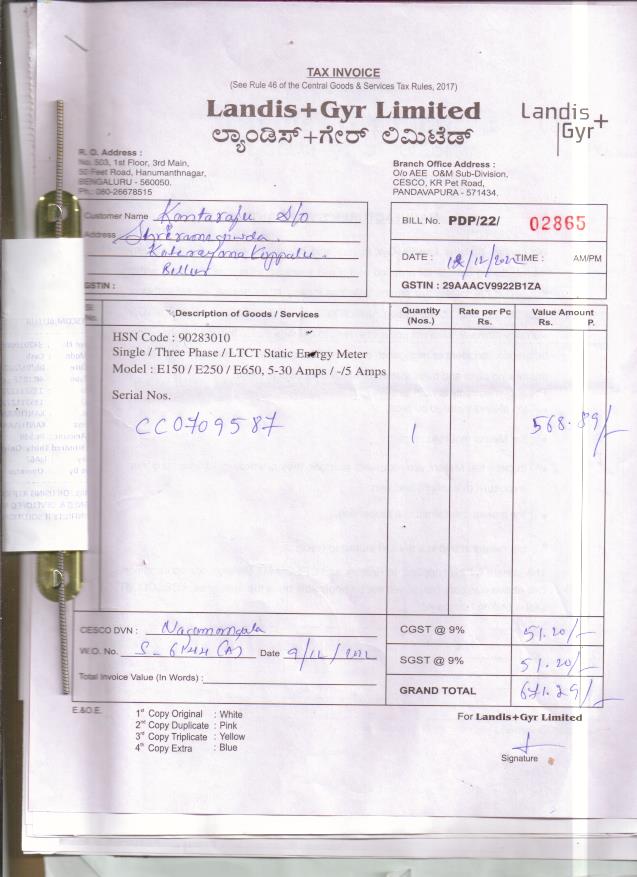 TAX INVOICE
(See Rule 46 of the Central Goods & Services Tax Rules, 2017)
Landis+Gyr Limited
ಲ್ಯಾಂಡಿಸ್+ಗೇರ್ ಲಿಮಿಟೆಡ್
Landis+
Gyr
R. O. Address :
No. 503, 1st Floor, 3rd Main,
50 Feet Road, Hanumanthnagar,
BENGALURU - 560050.
Ph.: 080-26678515
Branch Office Address :
O/o AEE O&M Sub-Division,
CESCO, KR Pet Road,
PANDAVAPURA - 571434.
Customer Name Kantaraju S/o
Address
GSTIN :
BILL No. PDP/22/ 02865
DATE : /12/2022 TIME : AM/PM
GSTIN : 29AAACV9922B1ZA
Sl. No. Description of Goods / Services Quantity (Nos.) Rate per Pc Rs. Value Amount Rs. P.
HSN Code : 90283010
Single / Three Phase / LTCT Static Energy Meter
Model : E150 / E250 / E650, 5-30 Amps / -/5 Amps
Serial Nos.
CC0709587 1 568.89/-
CESCO DVN : Nagamangala
W.O. No. S- 6144 (A) Date 9/12/
Total Invoice Value (In Words) :
CGST @ 9% 51.20/-
SGST @ 9% 51.20/-
GRAND TOTAL 671.29/-
E.&O.E.
1st Copy Original : White
2nd Copy Duplicate : Pink
3rd Copy Triplicate : Yellow
4th Copy Extra : Blue
For Landis+Gyr Limited
Signature